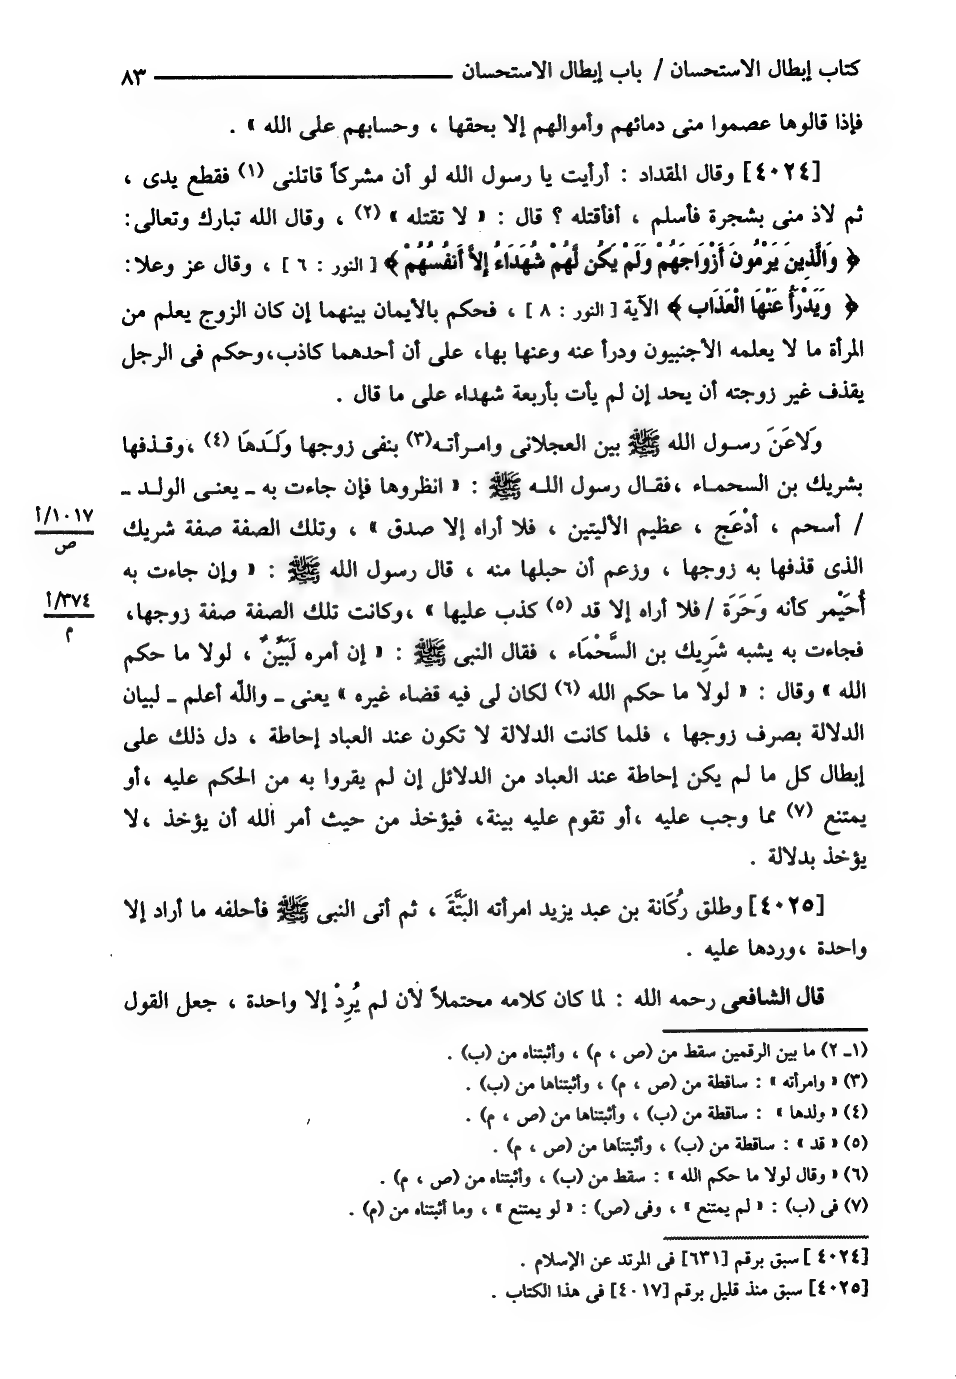 كتاب إبطال الاستحسان / باب إبطال الاستحسان ـــــ ٨٣
فإذا قالوها عصموا منى دمائهم وأموالهم إلا بحقها ، وحسابهم على الله » .
[٤٠٢٤] وقال المقداد : أرأيت يا رسول الله لو أن مشركاً قاتلنى (١) فقطع يدى ،
ثم لاذ منى بشجرة فأسلم ، أفأقتله ؟ قال : « لا تقتله » (٢) ، وقال الله تبارك وتعالى:
﴿ وَالَّذِينَ يَرْمُونَ أَزْوَاجَهُمْ وَلَمْ يَكُن لَّهُمْ شُهَدَاءُ إِلاَّ أَنفُسُهُمْ ﴾ [ النور : ٦ ] ، وقال عز وعلا:
﴿ وَيَدْرَأُ عَنْهَا الْعَذَابَ ﴾ الآية [ النور : ٨ ] ، فحكم بالأيمان بينهما إن كان الزوج يعلم من
المرأة ما لا يعلمه الأجنبيون ودرأ عنه وعنها بها، على أن أحدهما كاذب،وحكم فى الرجل
يقذف غير زوجته أن يحد إن لم يأت بأربعة شهداء على ما قال .
وَلاَعَنَ رسـول الله ﷺ بين العجلانى وامـرأتـه(٣) بنفى زوجها وَلَـدهَا (٤) ،وقـذفها
بشريك بن السحمـاء ،فقـال رسول اللـه ﷺ : « انظروها فإن جاءت به ـ يعنـى الولـد ـ
/ أسحم ، أدْعَج ، عظيم الأليتين ، فلا أراه إلا صدق » ، وتلك الصفة صفة شريك
١٠١٧/أ
ص
الذى قذفها به زوجها ، وزعم أن حبلها منه ، قال رسول الله ﷺ : « وإن جاءت به
أُحَيْمر كأنه وَحَرَة /فلا أراه إلا قد (٥) كذب عليها » ،وكانت تلك الصفة صفة زوجها،
٣٧٤/أ
م
فجاءت به يشبه شَرِيك بن السَّحْمَاء ، فقال النبى ﷺ : « إن أمره لَبَيِّنٌ ، لولا ما حكم
الله » وقال : « لولا ما حكم الله (٦) لكان لى فيه قضاء غيره » يعنى ـ واللّه أعلم ـ لبيان
الدلالة بصرف زوجها ، فلما كانت الدلالة لا تكون عند العباد إحاطة ، دل ذلك على
إبطال كل ما لم يكن إحاطة عند العباد من الدلائل إن لم يقروا به من الحكم عليه ،أو
يمتنع (٧) مما وجب عليه ،أو تقوم عليه بينة، فيؤخذ من حيث أمر الله أن يؤخذ ،لا
يؤخذ بدلالة .
[٤٠٢٥] وطلق رُكَانة بن عبد يزيد امرأته البَتَّةَ ، ثم أتى النبى ﷺ فأحلفه ما أراد إلا
واحدة ،وردها عليه .
قال الشافعى رحمه الله : لما كان كلامه محتملاً لأن لم يُرِدْ إلا واحدة ، جعل القول
(١ـ ٢) ما بين الرقمين سقط من (ص ، م) ، وأثبتناه من (ب) .
(٣) « وامرأته » : ساقطة من (ص ، م) ، وأثبتناها من (ب) .
(٤) « ولدها » : ساقطة من (ب) ، وأثبتناها من (ص ، م) .
(٥) « قد » : ساقطة من (ب) ، وأثبتناها من (ص ، م) .
(٦) « وقال لولا ما حكم الله » : سقط من (ب) ، وأثبتناه من (ص ، م) .
(٧) فى (ب) : « لم يمتنع » ، وفى (ص) : « لو يمتنع » ، وما أثبتناه من (م) .
[٤٠٢٤ ] سبق برقم [٦٣١] فى المرتد عن الإسلام .
[٤٠٢٥] سبق منذ قليل برقم [٤٠١٧] فى هذا الكتاب .